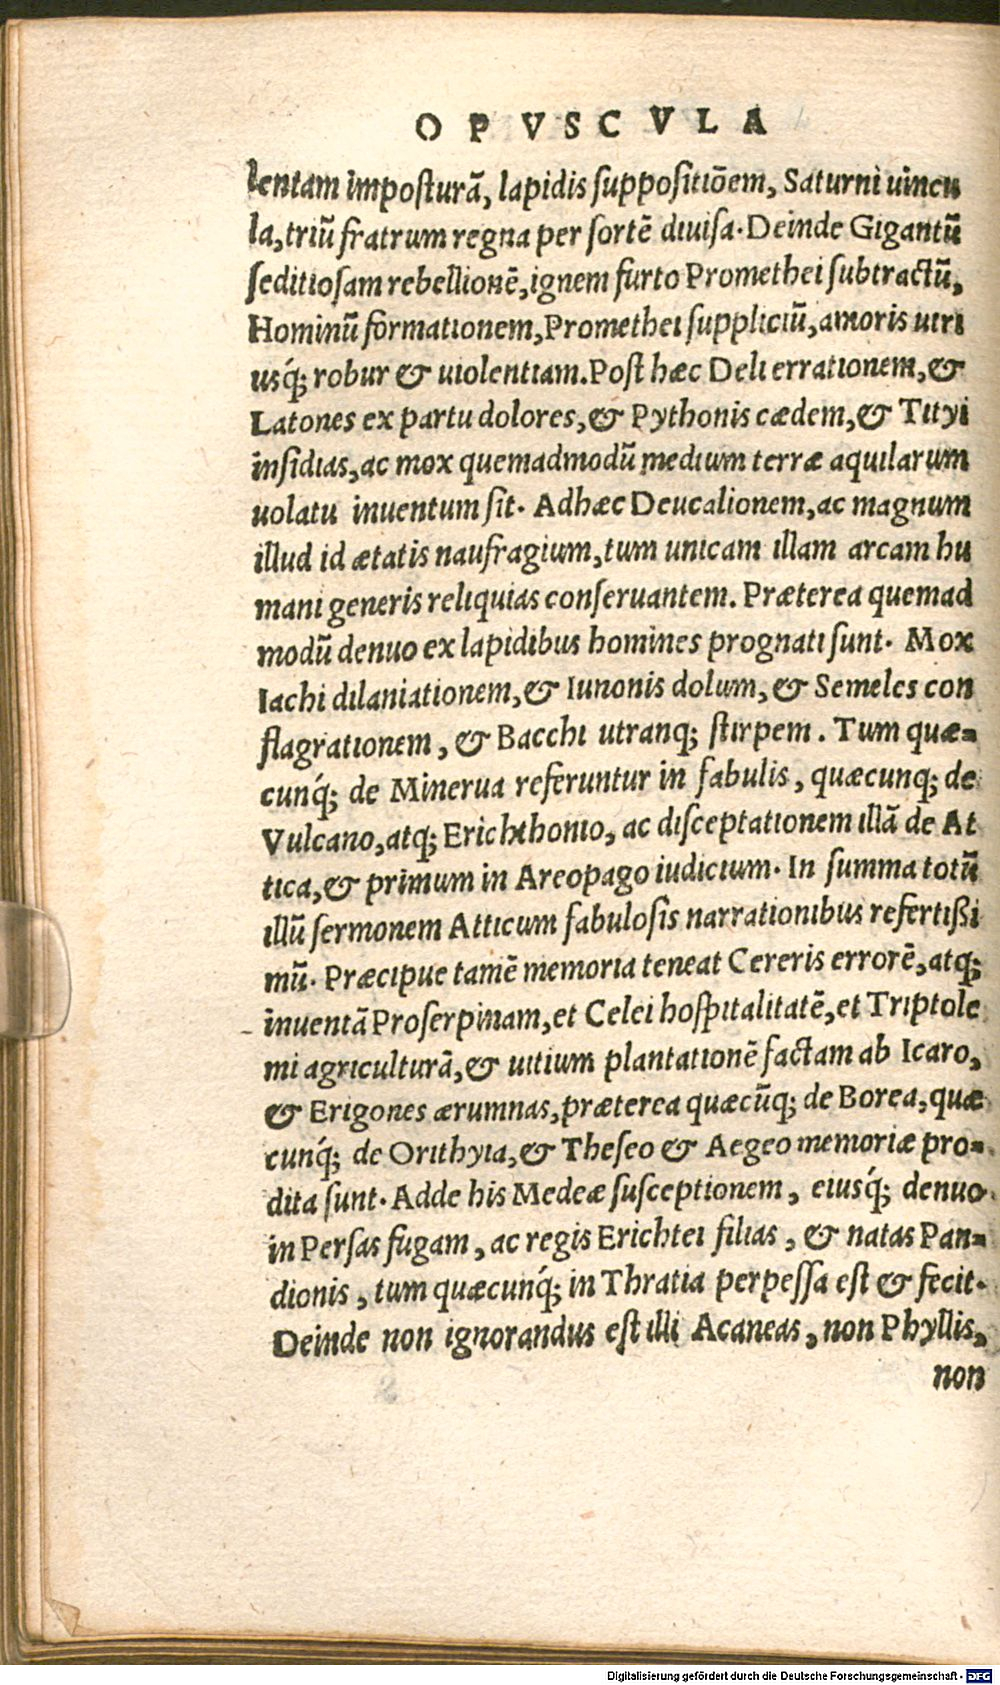 OPVSCVLA
lentam imposturã, lapidis suppositiõem, Saturni uincu
la, triũ fratrum regna per sortẽ diuisa. Deinde Gigantũ
seditiosam rebellionẽ, ignem furto Promethei subtractũ,
Hominũ formationem, Promethei suppliciũ, amoris utri
usq́; robur & uiolentiam. Post hæc Deli errationem, &
Latones ex partu dolores, & Pythonis cædem, & Tityi
insidias, ac mox quemadmodũ medium terræ aquilarum
uolatu inuentum sit. Adhæc Deucalionem, ac magnum
illud id ætatis naufragium, tum unicam illam arcam hu
mani generis reliquias conseruantem. Præterea quemad
modũ denuo ex lapidibus homines prognati sunt. Mox
Iachi dilaniationem, & Iunonis dolum, & Semeles con
flagrationem, & Bacchi utranq; stirpem. Tum quæ=
cunq́; de Minerua referuntur in fabulis, quæcunq; de
Vulcano, atq; Erichthonio, ac disceptationem illã de At
tica, & primum in Areopago iudicium. In summa totũ
illũ sermonem Atticum fabulosis narrationibus refertißi
mũ. Præcipue tamẽ memoria teneat Cereris errorẽ, atq;
inuentã Proserpinam, et Celei hospitalitatẽ, et Triptole
mi agriculturã, & uitium plantationẽ factam ab Icaro,
& Erigones ærumnas, præterea quæcũq; de Borea, quæ
cunq́; de Orithyia, & Theseo & Aegeo memoriæ pro=
dita sunt. Adde his Medeæ susceptionem, eiusq́; denuo
in Persas fugam, ac regis Erichtei filias, & natas Pan=
dionis, tum quæcunq́; in Thratia perpessa est & fecit.
Deinde non ignorandus est illi Acaneas, non Phyllis,
non
Digitalisierung gefördert durch die Deutsche Forschungsgemeinschaft - DFG